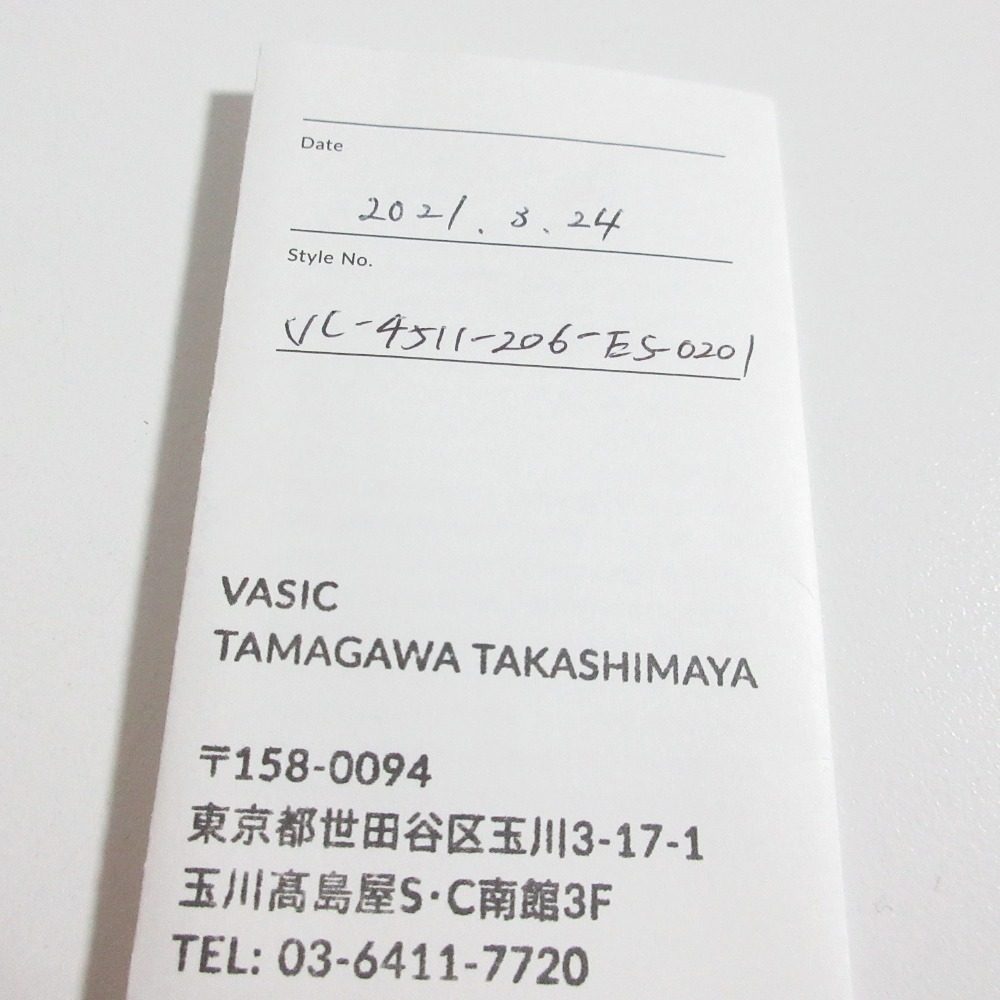 Date
2021.3.24
Style No.
VC-4511-206-ES-0201
VASIC
TAMAGAWA TAKASHIMAYA
〒158-0094
東京都世田谷区玉川3-17-1
玉川髙島屋S・C南館3F
TEL: 03-6411-7720